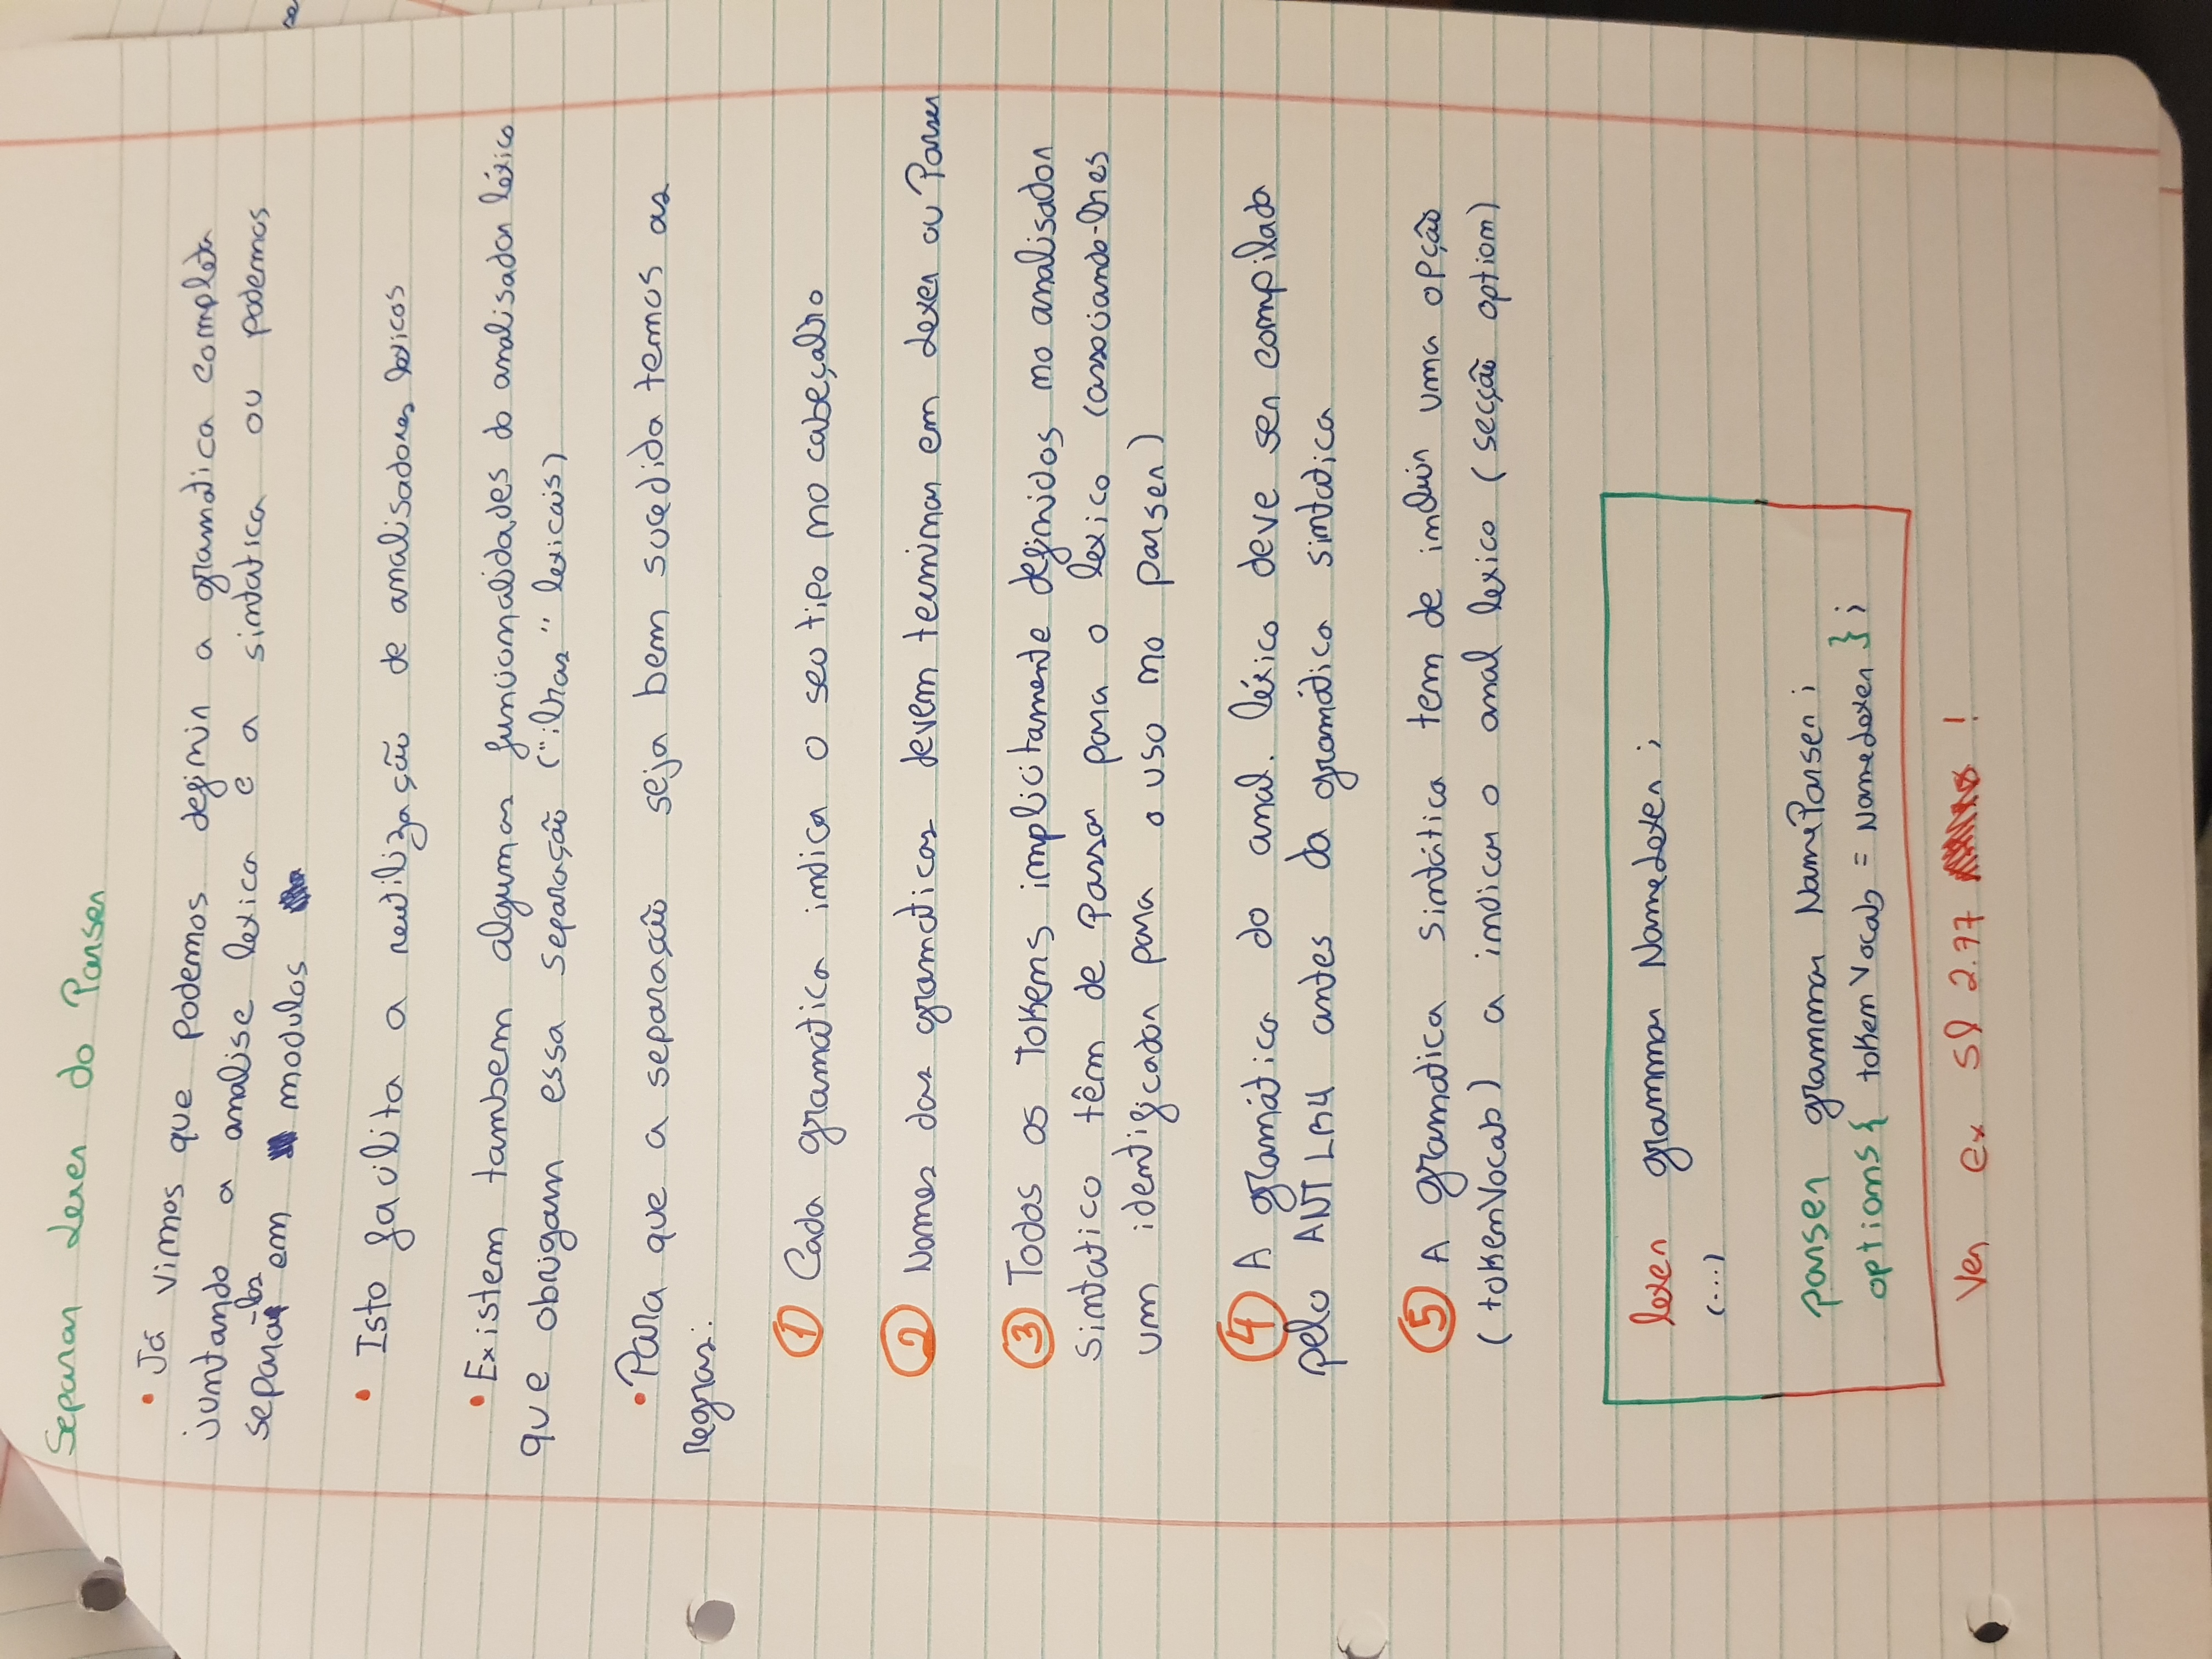 Separar Lexer do Parser
• Já vimos que podemos definir a gramatica completa
juntando a analise lexica e a sintatica ou podemos
separa-las em modulos
• Isto facilita a reutilização de analisadores lexicos
• Existem tambem algumas funcionalidades do analisador léxico
que obrigam essa separação ("ilhas" lexicais)
• Para que a separação seja bem sucedida temos as
regras:
① Cada gramatica indica o seu tipo no cabeçalho
② Nomes das gramaticas devem terminar em Lexer ou Parser
③ Todos os Tokens implicitamente definidos no analisador
sintatico têm de passar para o lexico (associando-lhes
um identificador para o uso no parser)
④ A gramática do anal. léxico deve ser compilada
pelo ANTLR4 antes da gramática sintatica
⑤ A gramatica sintática tem de incluir uma opção
(tokenVocab) a indicar o anal lexico (secção option)
lexer grammar NameLexer ;
(...)
parser grammar NameParser ;
options { tokenVocab = NameLexer } ;
Ver ex sl 2.77 !